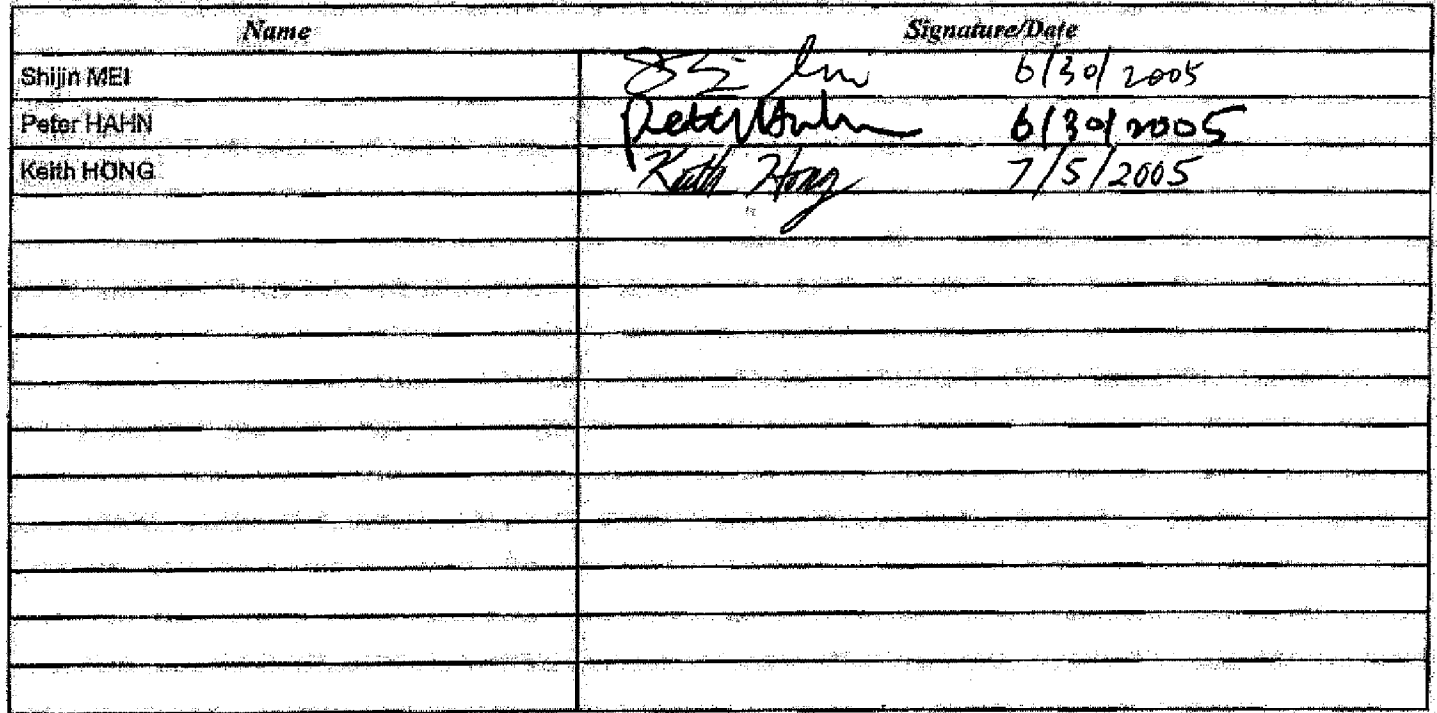 Name Signature/Date
Shijin MEI 6/30/2005
Peter HAHN Peter Hahn 6/30/2005
Keith HONG Keith Hong 7/5/2005